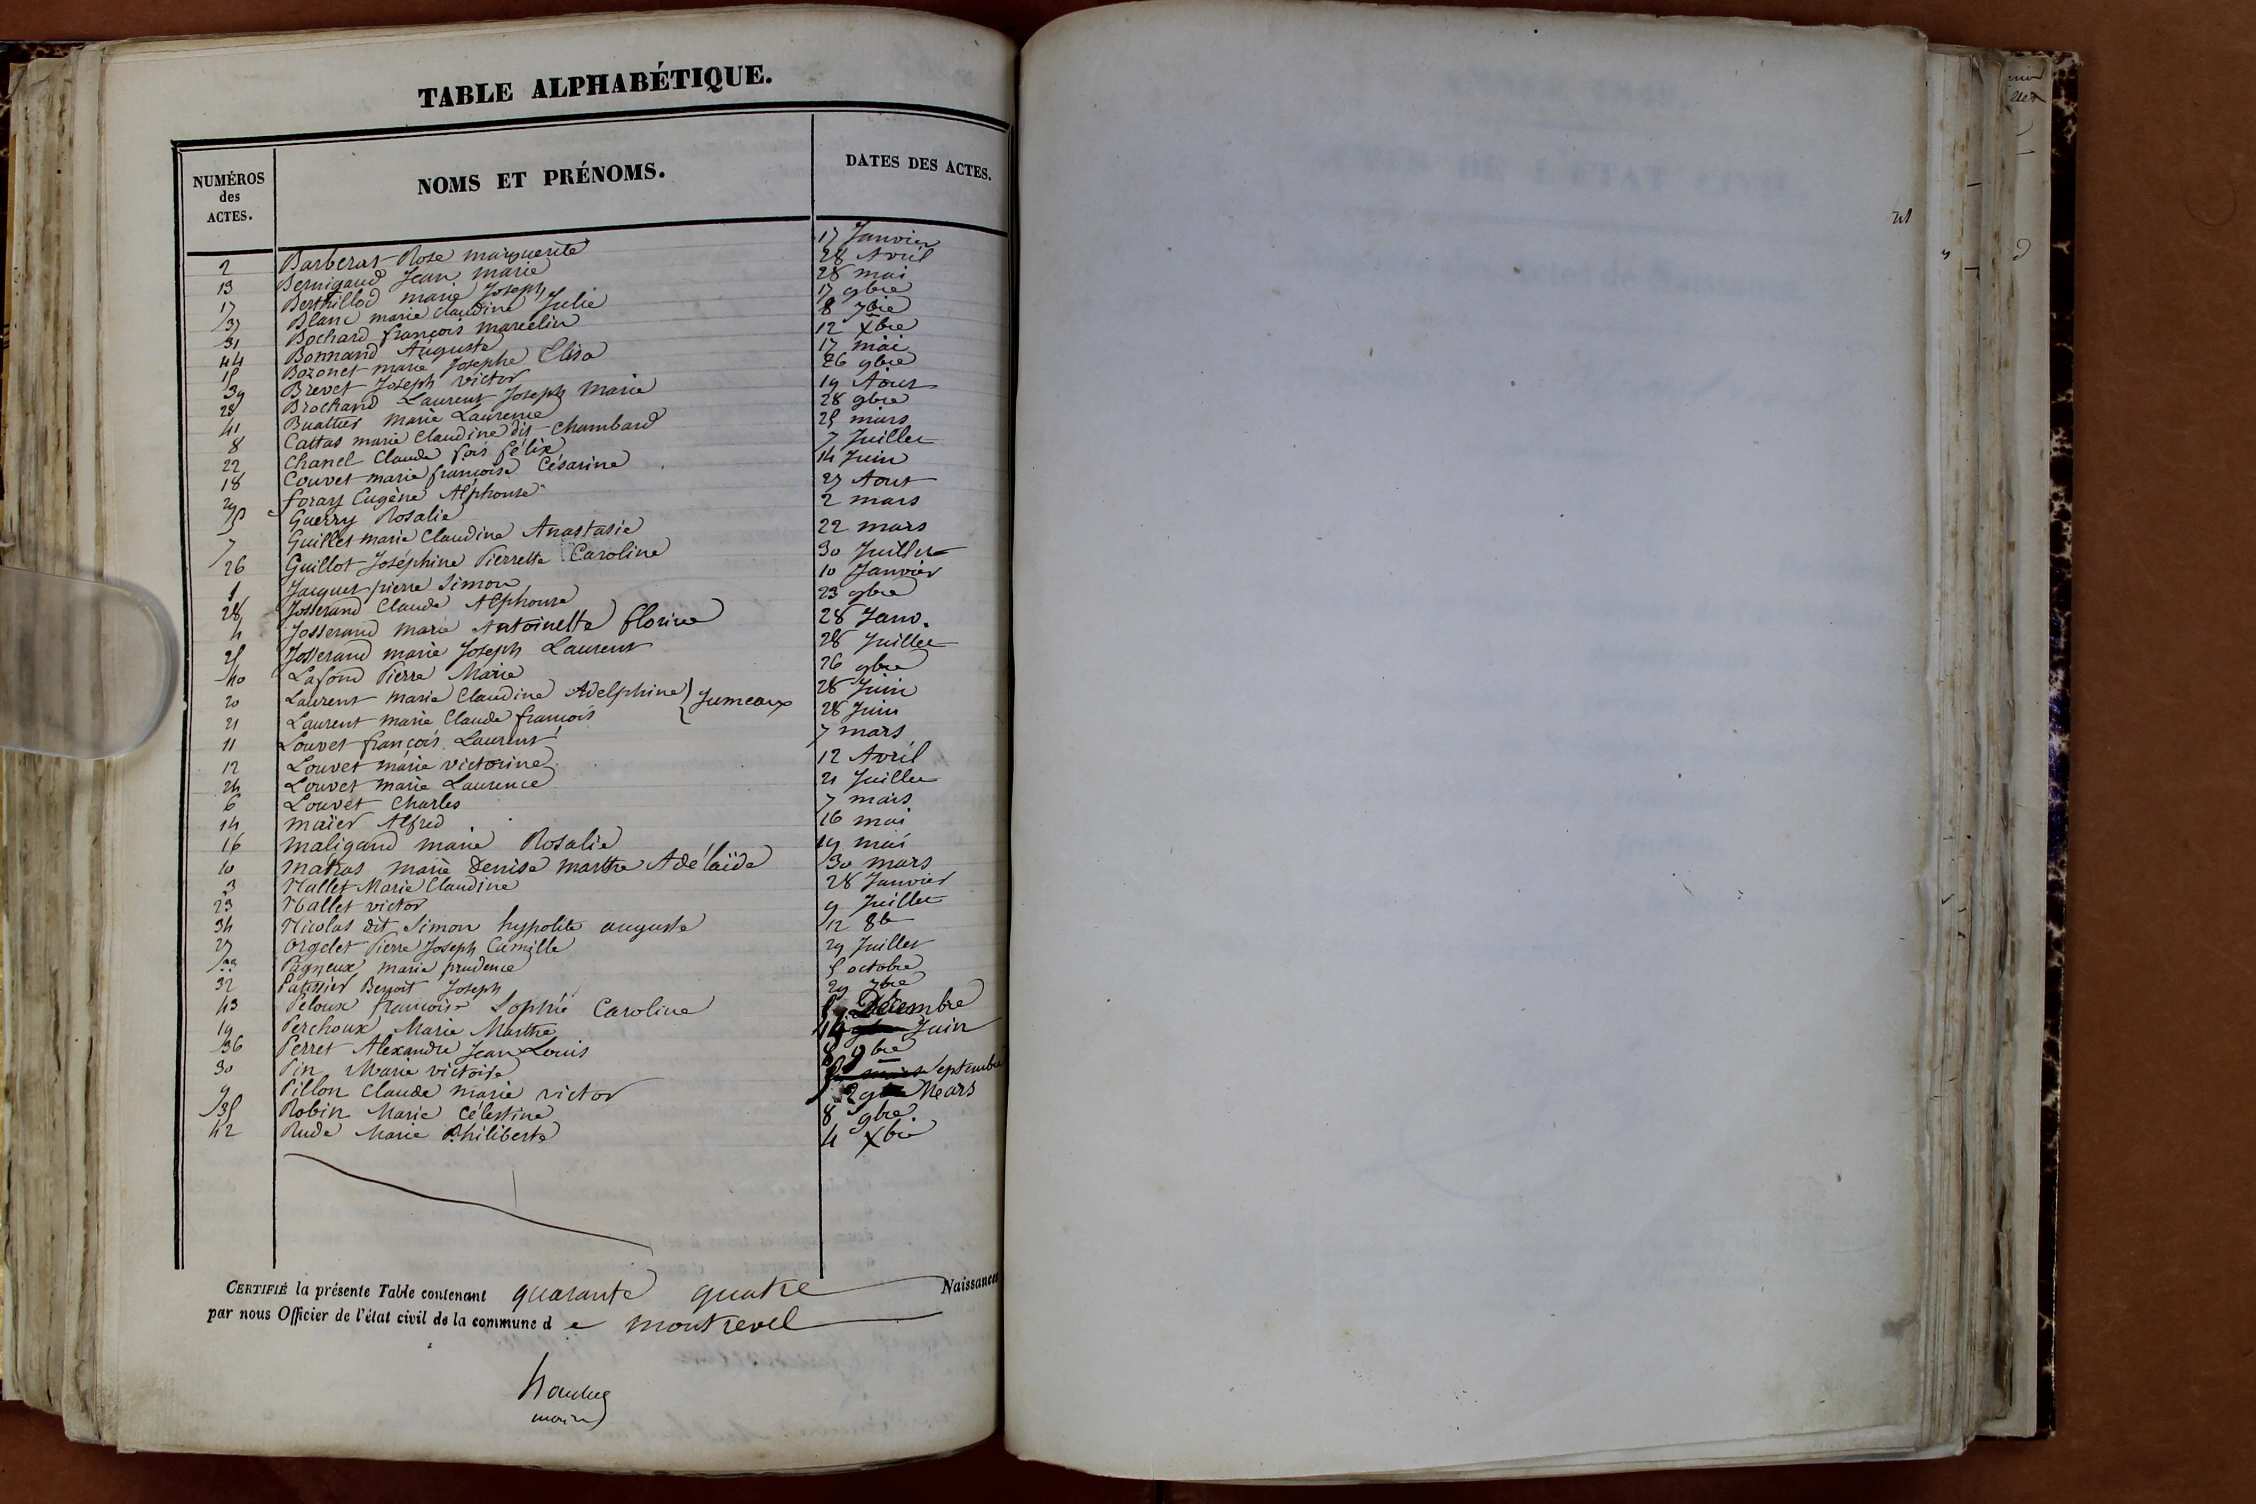 TABLE ALPHABÉTIQUE.
NUMÉROS des ACTES. NOMS ET PRÉNOMS. DATES DES ACTES.
2 Barberat Rose marguerite 17 Janvier
13 Bernigaud Jean marie 28 Avril
17 Berthillod marie Joseph 28 mai
37 Blanc marie claudine Julie 17 9bre
31 Bochard françois marcelin 8 7bre
44 Bonnand Auguste 12 Xbre
15 Bozonet marie Josephe Elisa 17 mai
39 Brevet Joseph victor 26 9bre
28 Brochand Laurent Joseph Marie 19 Aout
41 Buathier Marie Laurence 28 9bre
8 Cattas marie Claudine dit Chambard 25 mars
22 Chanel Claude fois félix 7 Juillet
18 Couvet marie françoise Césarine 14 Juin
29 foray Eugène Alphonse 27 Aout
5 Guerry Rosalie 2 mars
7 Guillet marie Claudine Anastasie 22 mars
26 Guillot Joséphine Pierrette Caroline 30 Juillet
1 Jaquet pierre Simon 10 Janvier
28 Josserand Claude Alphonse 23 9bre
4 Josserand marie Antoinette florine 28 Janv.
25 Josserand marie Joseph Laurent 28 Juillet
40 Lafond Pierre Marie 26 9bre
20 Laurent marie Claudine Adelphine } Jumeaux 28 Juin
21 Laurent marie Claude françois 28 Juin
11 Louvet françois Laurent 7 mars
12 Louvet marie victorine 12 Avril
24 Louvet marie Laurence 21 Juillet
6 Louvet Charles 7 mars
14 maïer Alfred 16 mai
16 maligand marie Rosalie 19 mai
10 matras marie Denise marthe Adélaïde 30 mars
3 Nallet Marie Claudine 28 Janvier
23 Nallet victor 9 Juillet
34 Nicolas dit Simon hypolite auguste 12 8b
27 Orgelet Pierre Joseph Camille 29 Juillet
33 Pagneux marie prudence 5 octobre
32 Patissier Benoit Joseph 29 7bre
43 Peloux françoise Sophie Caroline Décembre
19 Perchoux Marie Marthe 14 Juin
36 Perret Alexandre Jean Louis 8 9bre
30 Pin Marie victoise Septembre
9 Pillon Claude marie victor Mars
35 Robin Marie Célestine 8 9bre.
42 Rude Marie Philiberte 4 Xbre
CERTIFIÉ la présente Table contenant quarante quatre Naissances
par nous Officier de l'état civil de la commune d e montrevel
maire